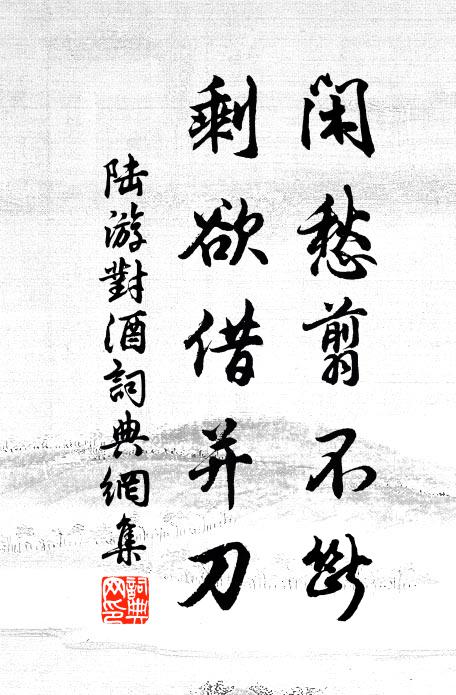 閑愁翦不斷
剩欲借并刀
陆游對酒詞典網集
詞典網印